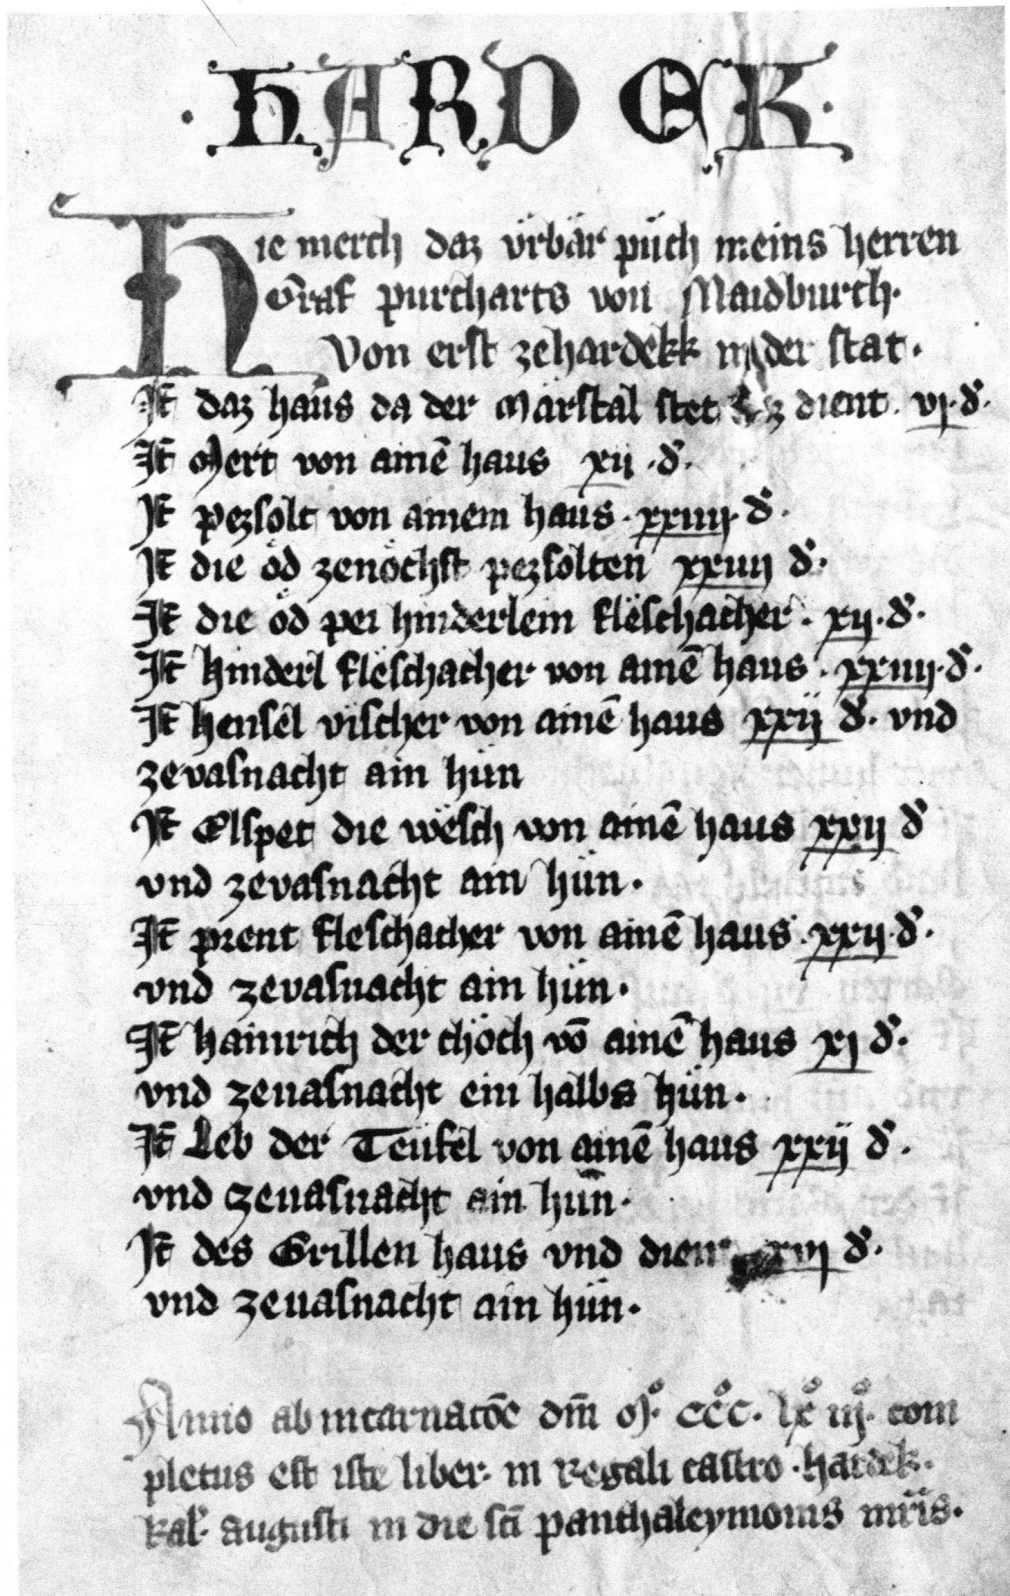 · HARD EK ·
Hie merch daz ürbär püch meins herren
Graf purcharts von Maidburch·
Von erst zehardekk in der stat·
It̄ daz haüs da der Marstal stet dient· vj·d̾·
It̄ Mert von ainē haus xij ·d̾·
It̄ pezsolt von ainem haus· xxiiij· d̾·
It̄ die öd zenöchst pezsolten xxiiij d̾·
It̄ die öd pei hinderlein flëschacher· xij·d̾·
It̄ hinderl flëschacher von ainē haus· xxiiij·d̾·
It̄ hensel vischer von ainē haus xxij d̾· vnd
zevasnacht ain hün
It̄ Elspet die wësch von ainē haus xxij d̾
vnd zevasnacht ain hün·
It̄ prent fleschacher von ainē haus· xxij·d̾·
vnd zevasnacht ain hün·
It̄ hainrich der chöch vō ainē haus xj d̾·
vnd zeuasnacht ein halbs hün·
It̄ Leb der Teüfel von ainē haus xxij d̾·
vnd zeuasnacht ain hün·
It̄ des Grillen haus vnd d̾·
vnd zeuasnacht ain hün·
Anno ab incarnatōe dm̄ Mº· CCCº· lxº iijº· com
pletus est iste liber· in Regali castro ·hardek·
kal̾· augusti in die sc̄i panthaleymonis mr̄is·